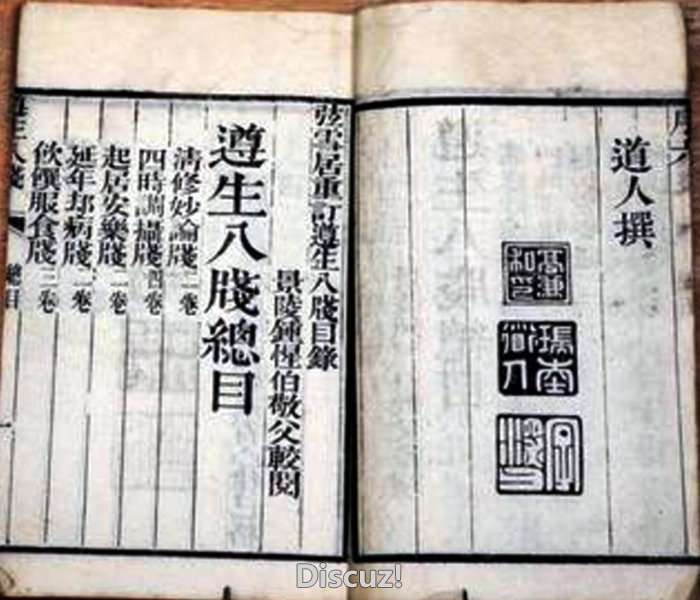 道人撰
弦雪居重訂遵生八牋目錄
景陵鍾惺伯敬父較閱
遵生八牋總目
清修妙論牋二卷
四時調攝牋四卷
起居安樂牋二卷
延年却病牋二卷
飲饌服食牋三卷
遵生八牋 總目
Discuz!